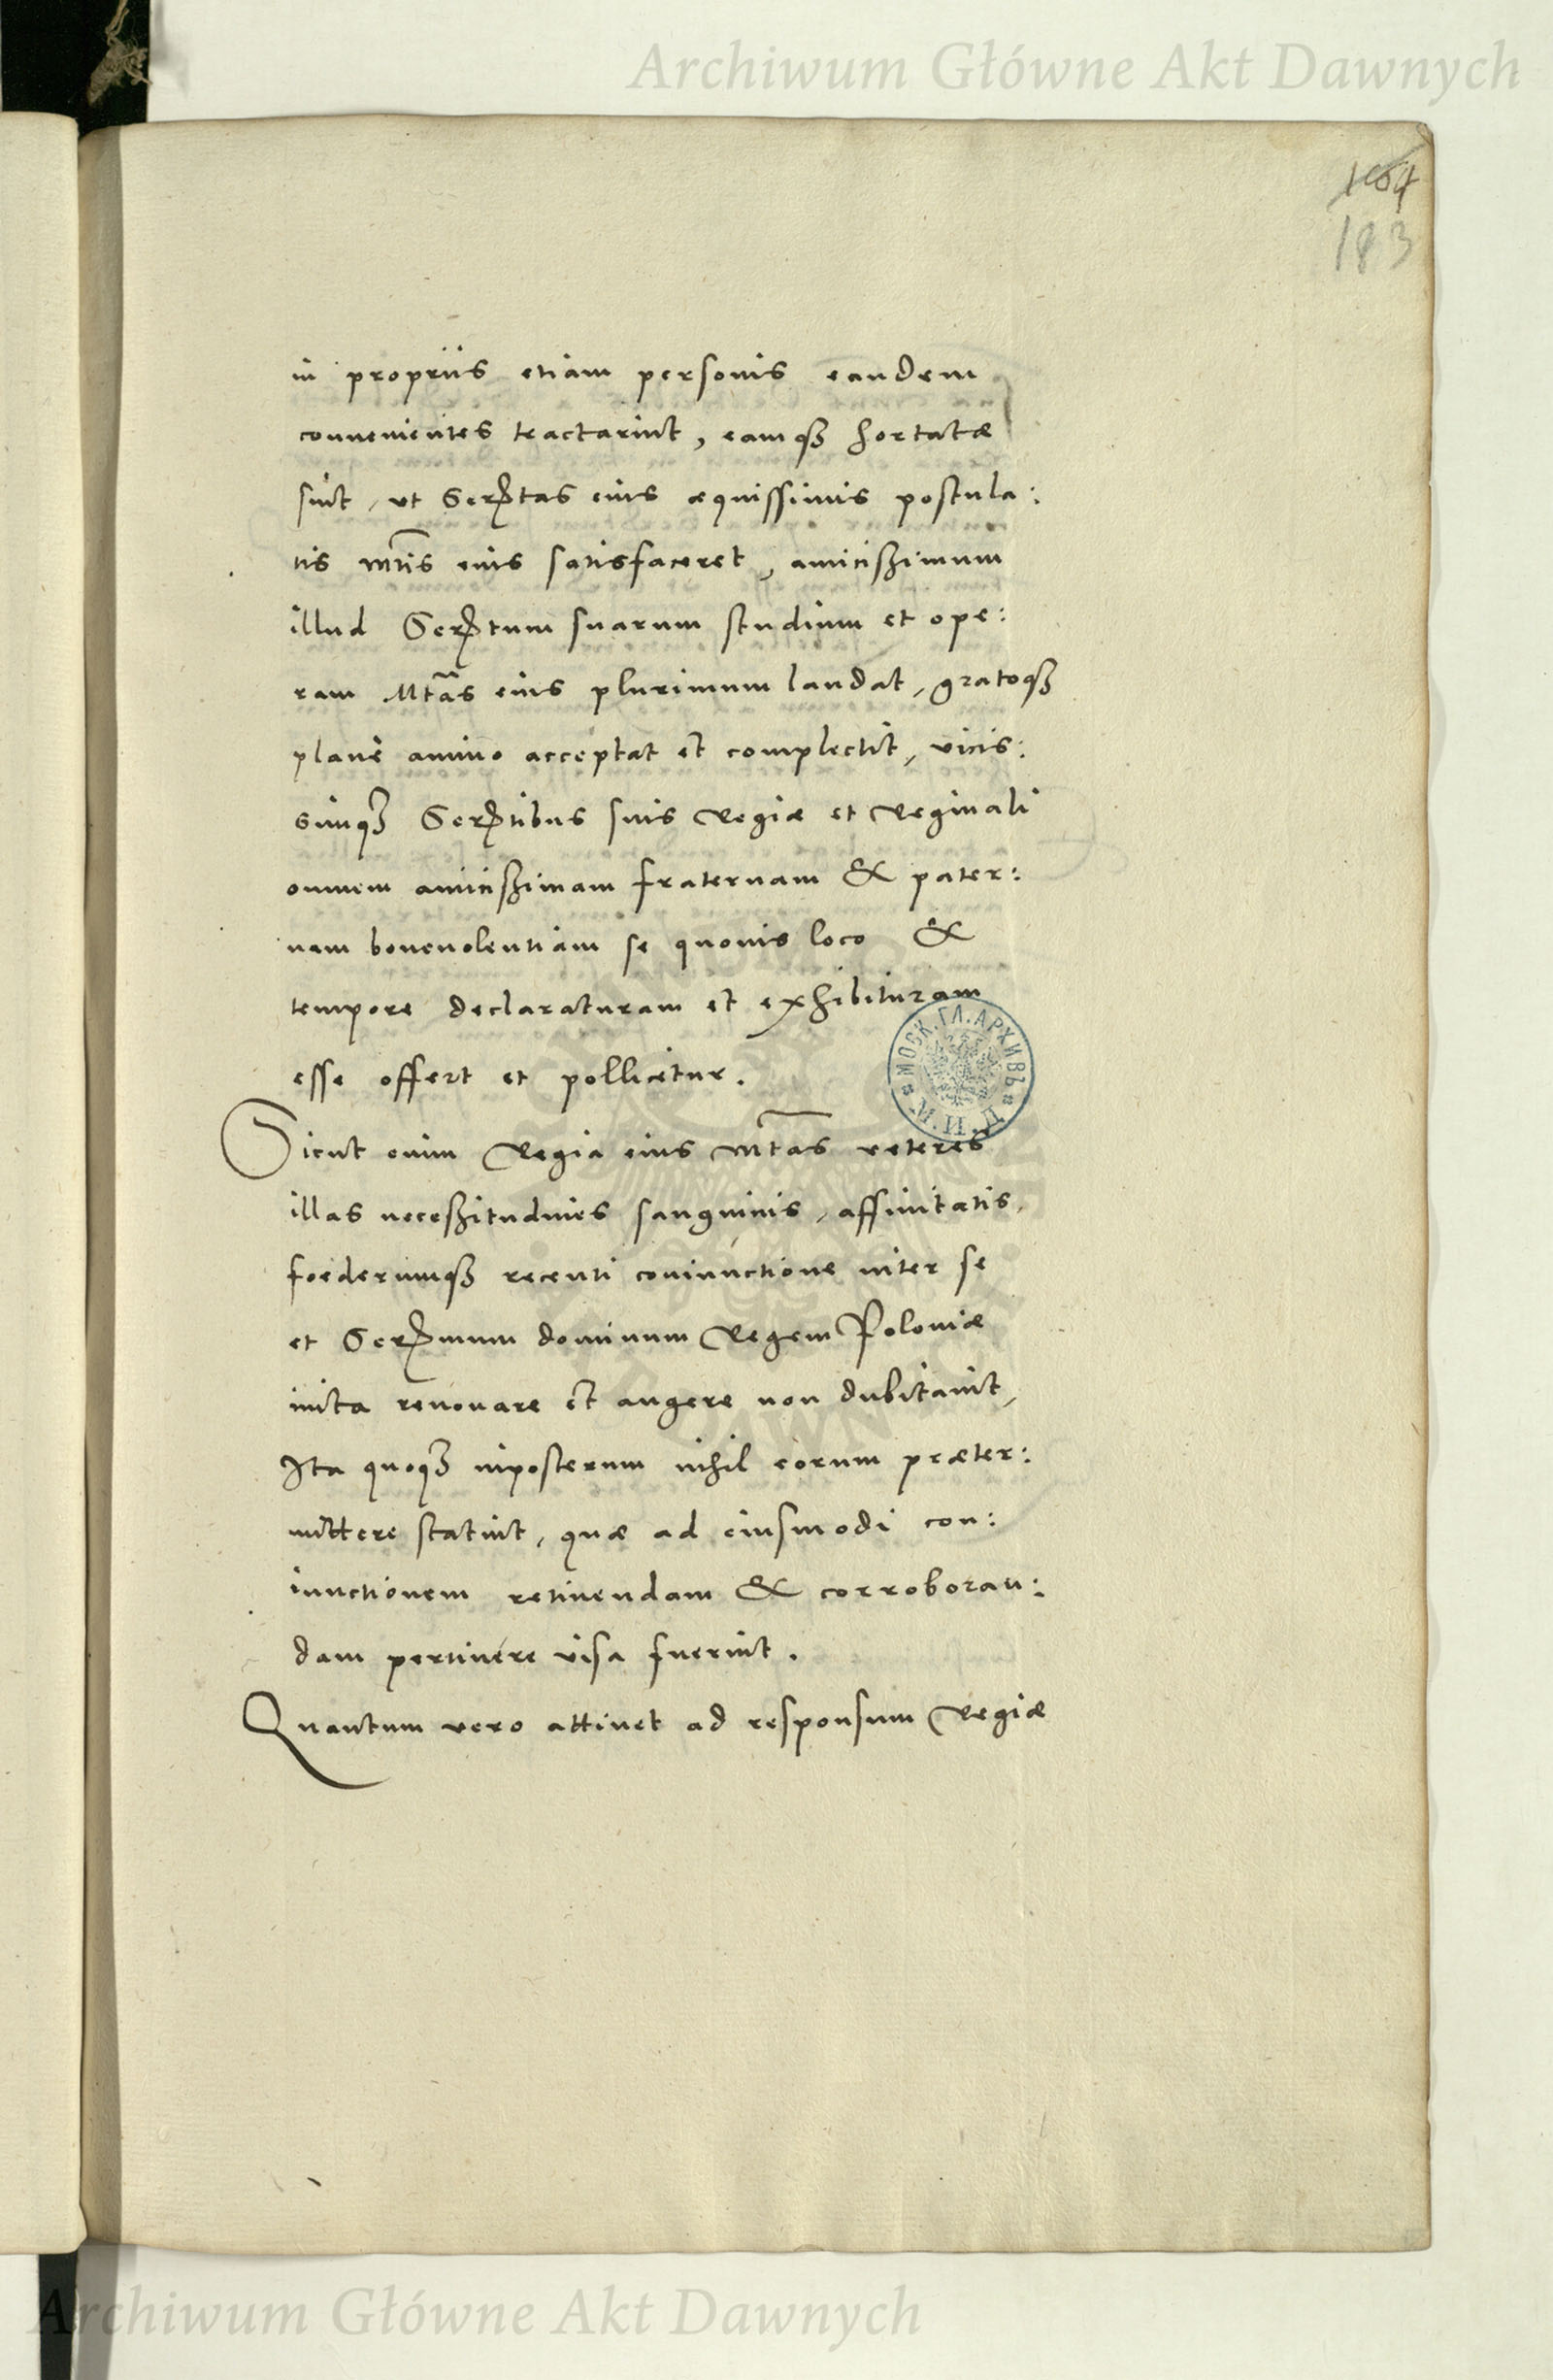 Archiwum Główne Akt Dawnych
104
183
in propriis etiam personis eandem
conuenientes tractarint, eamqȝ hortatæ
sint, vt Serᵐtas eius æquissimis postula:
tis Mtis eius satisfaceret, amicißimum
illud Serᵐtum suarum studium et ope:
ram Mtas eius plurimum laudat, gratoqȝ
planè animo acceptat et complectit, vicis:
simqȝ Serᵐtibus suis Regiæ et Reginali
omnem amicißimam fraternam & pater:
nam beneuolentiam se quouis loco &
tempore declaraturam et exhibituram
esse offert et pollicetur.
Sicut enim Regia eius Mtas veteres
illas neceßitudines sanguinis, affinitatis,
foederumqȝ recenti coniunctione inter se
et Serᵐmum dominum Regem Poloniæ
inita renouare et augere non dubitauit,
Ita quoqȝ inposterum nihil eorum præter:
mittere statuit, quæ ad eiusmodi con:
iunctionem retinendam & corroboran:
dam pertinere visa fuerint.
Quantum vero attinet ad responsum Regiæ
МОСК. ГЛ. АРХИВЪ М. И. Д.
Archiwum Główne Akt Dawnych